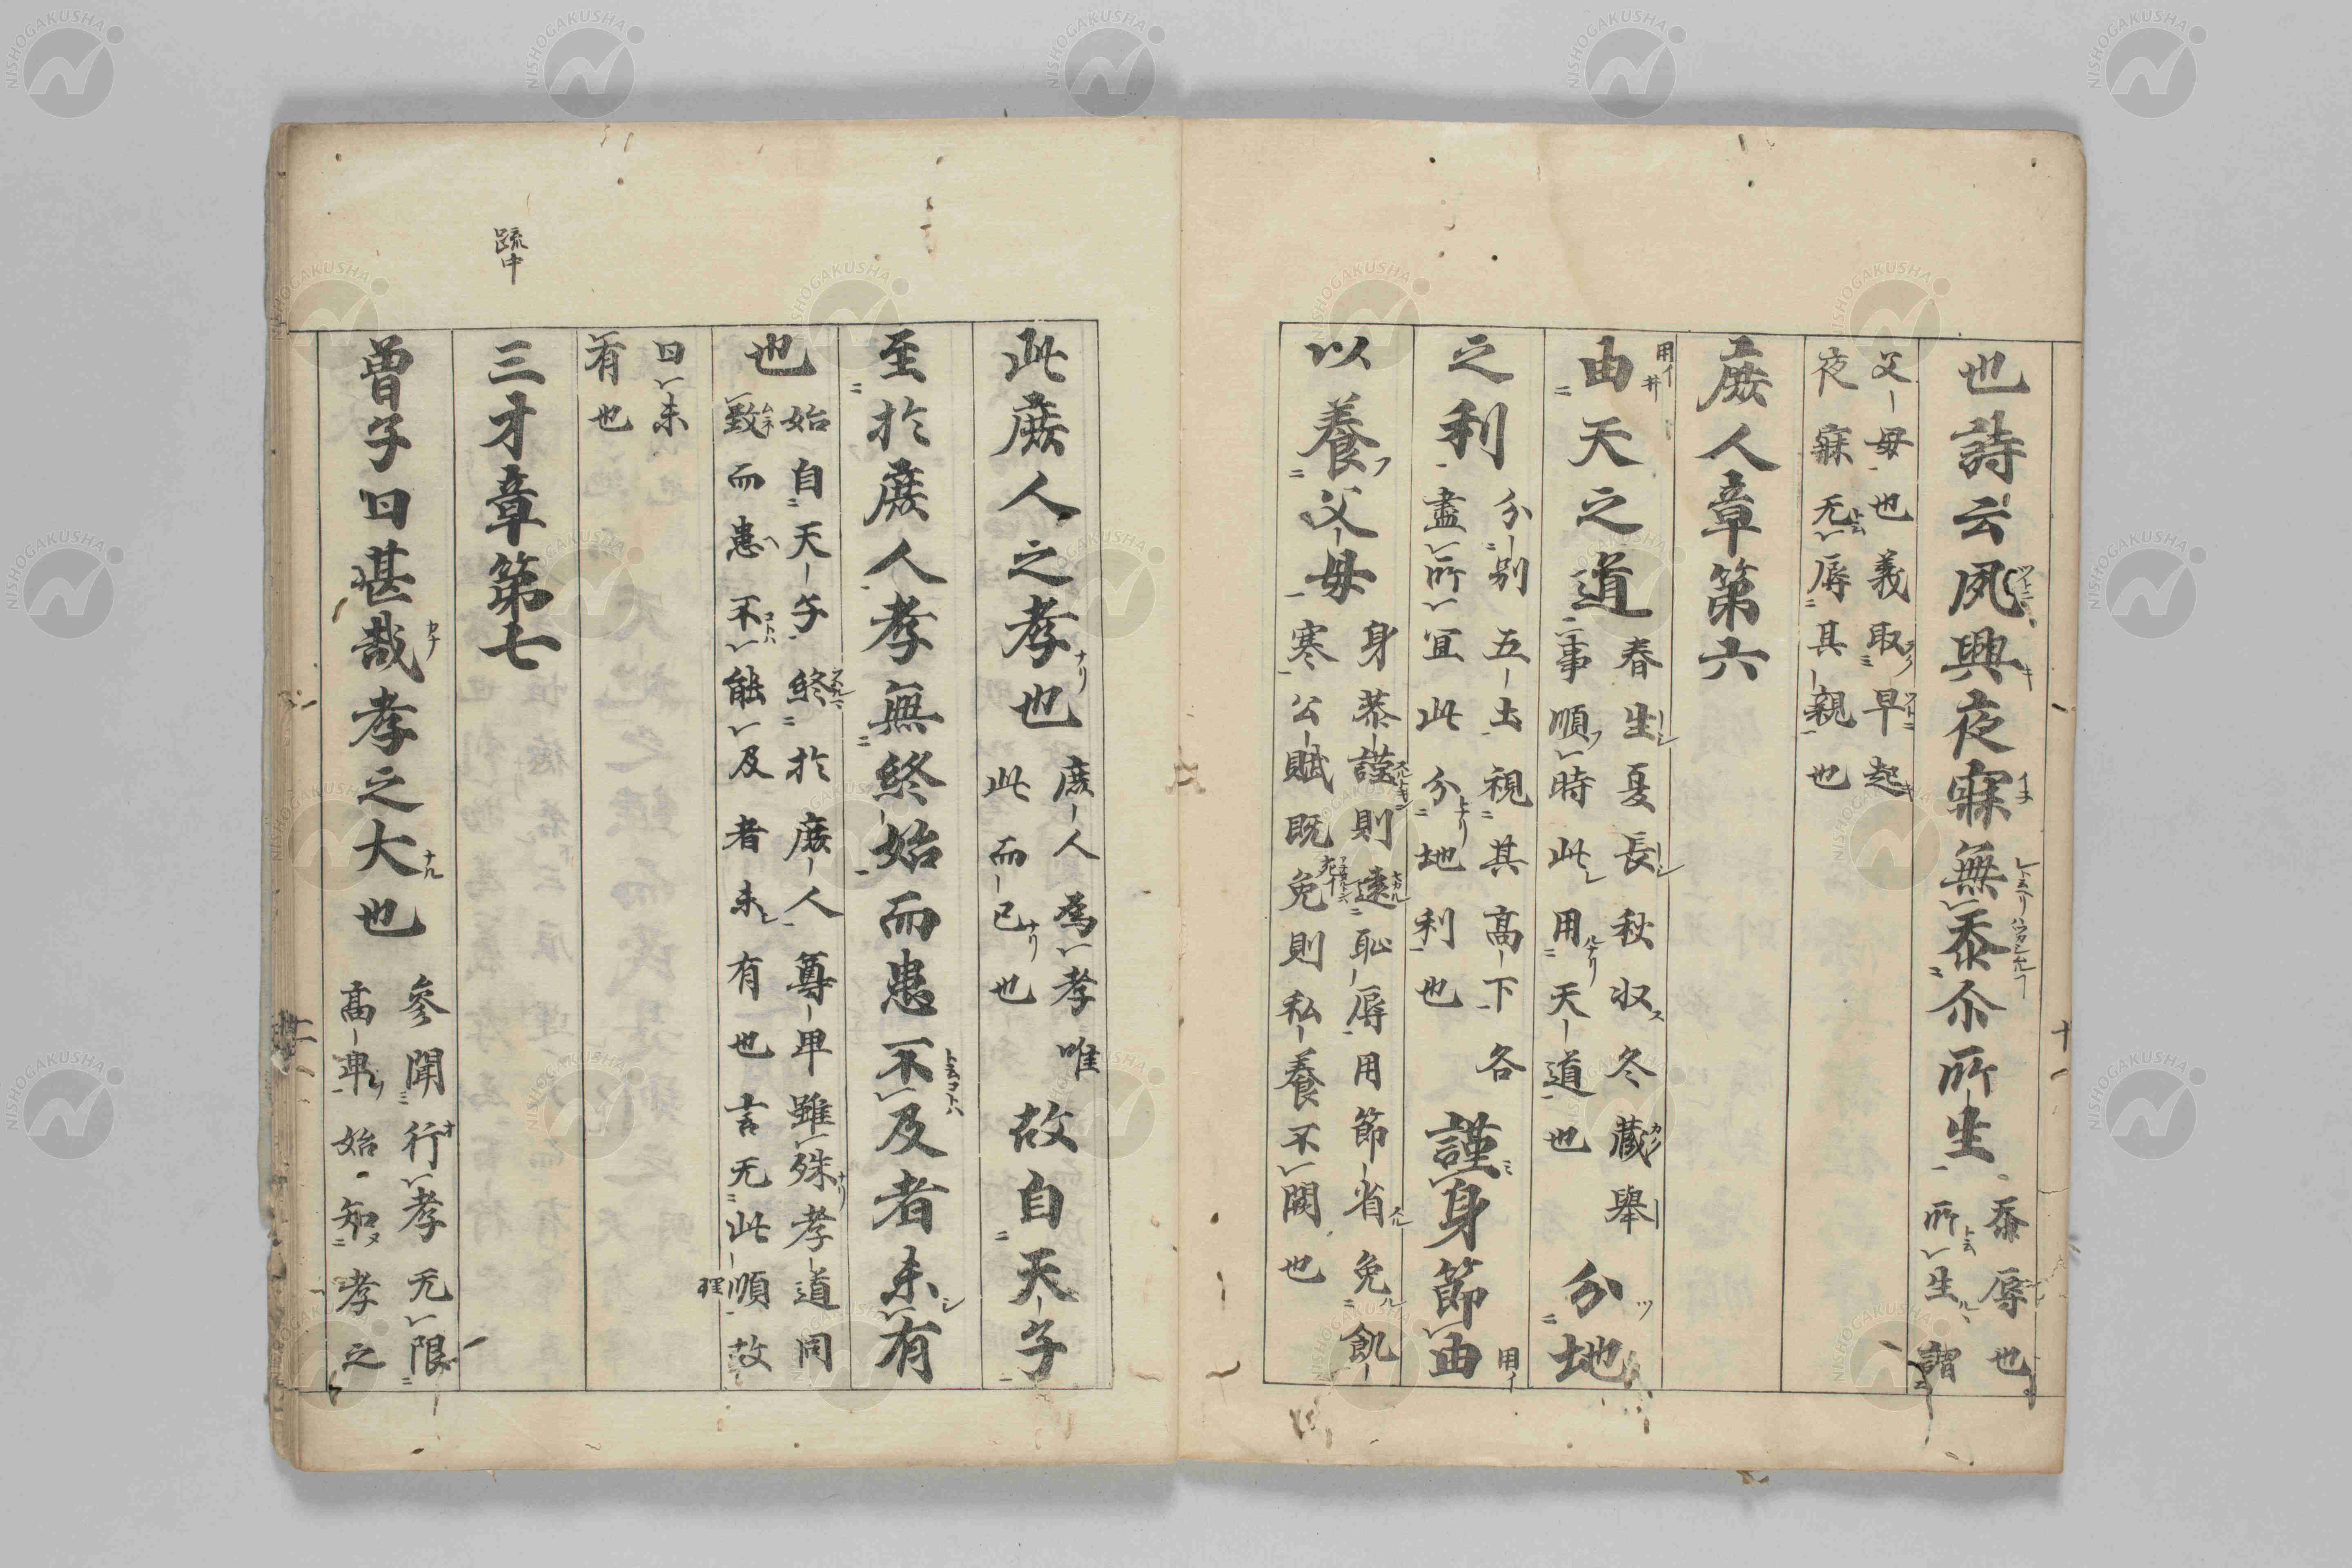 也詩云夙興夜寐無忝尒所生 忝辱也
所生謂
父母也義取早起
夜寐无辱其親也
庶人章第六
由天之道 春生夏長秋収冬蔵舉
事順時此用天道也
分地
之利 分別五土視其髙下各
盡所宜此分地利也
謹身節由
以養父母 身恭謹則遠恥辱用節省免飢
寒公賦既免則私養不闕也
此庶人之孝也 庶人為孝唯
此而已也
故自天子
至於庶人孝無終始而患不及者未有
也 始自天子終於庶人尊卑雖殊孝道同
致而患不能及者未有也言无此順故
理
曰未
有也
疏中
三才章第七
曽子曰甚哉孝之大也 參聞行孝无限
髙卑始知孝之
十一
NISHOGAKUSHA